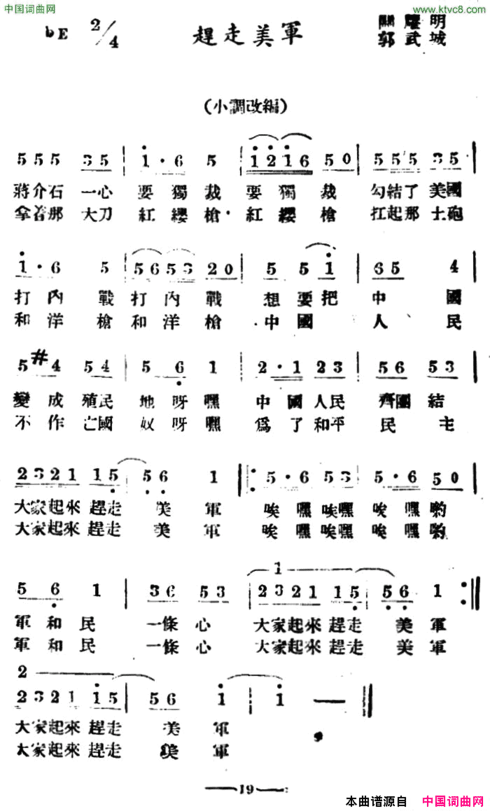 中国词曲网
www.ktvc8.com
bE 2/4
趕走美軍
關耀明
郭武城
(小調改編)
5 5 5 3 5 | 1 · 6 5 | 1 2 1 6 5 0 | 5 5 5 3 5 |
蔣介石一心 要獨裁 要獨裁 勾結了美國
拿着那大刀 紅纓槍 紅纓槍 扛起那土砲
1 · 6 5 | 5 6 5 3 2 0 | 5 5 1 | 6 5 4 |
打內戰 打內戰 想要把 中國
和洋槍 和洋槍 中國 人民
5 #4 5 4 | 5 6 1 | 2 · 1 2 3 | 5 6 5 3 |
變成殖民 地呀嘿 中國人民 齊團結
不作亡國 奴呀嘿 爲了和平 民主
2 3 2 1 1 5 | 5 6 1 | 5 · 6 5 3 | 5 · 6 5 0 |
大家起來趕走 美軍 唉嘿唉嘿 唉嘿喲
大家起來趕走 美軍 唉嘿唉嘿 唉嘿喲
1
5 6 1 | 3 6 5 3 | 2 3 2 1 1 5 | 5 6 1 :||
軍和民 一條心 大家起來趕走 美軍
軍和民 一條心 大家起來趕走 美軍
2
2 3 2 1 1 5 | 5 6 1 | 1 — ||
大家起來趕走 美軍
大家起來趕走 美軍
19
本曲谱源自 中国词曲网